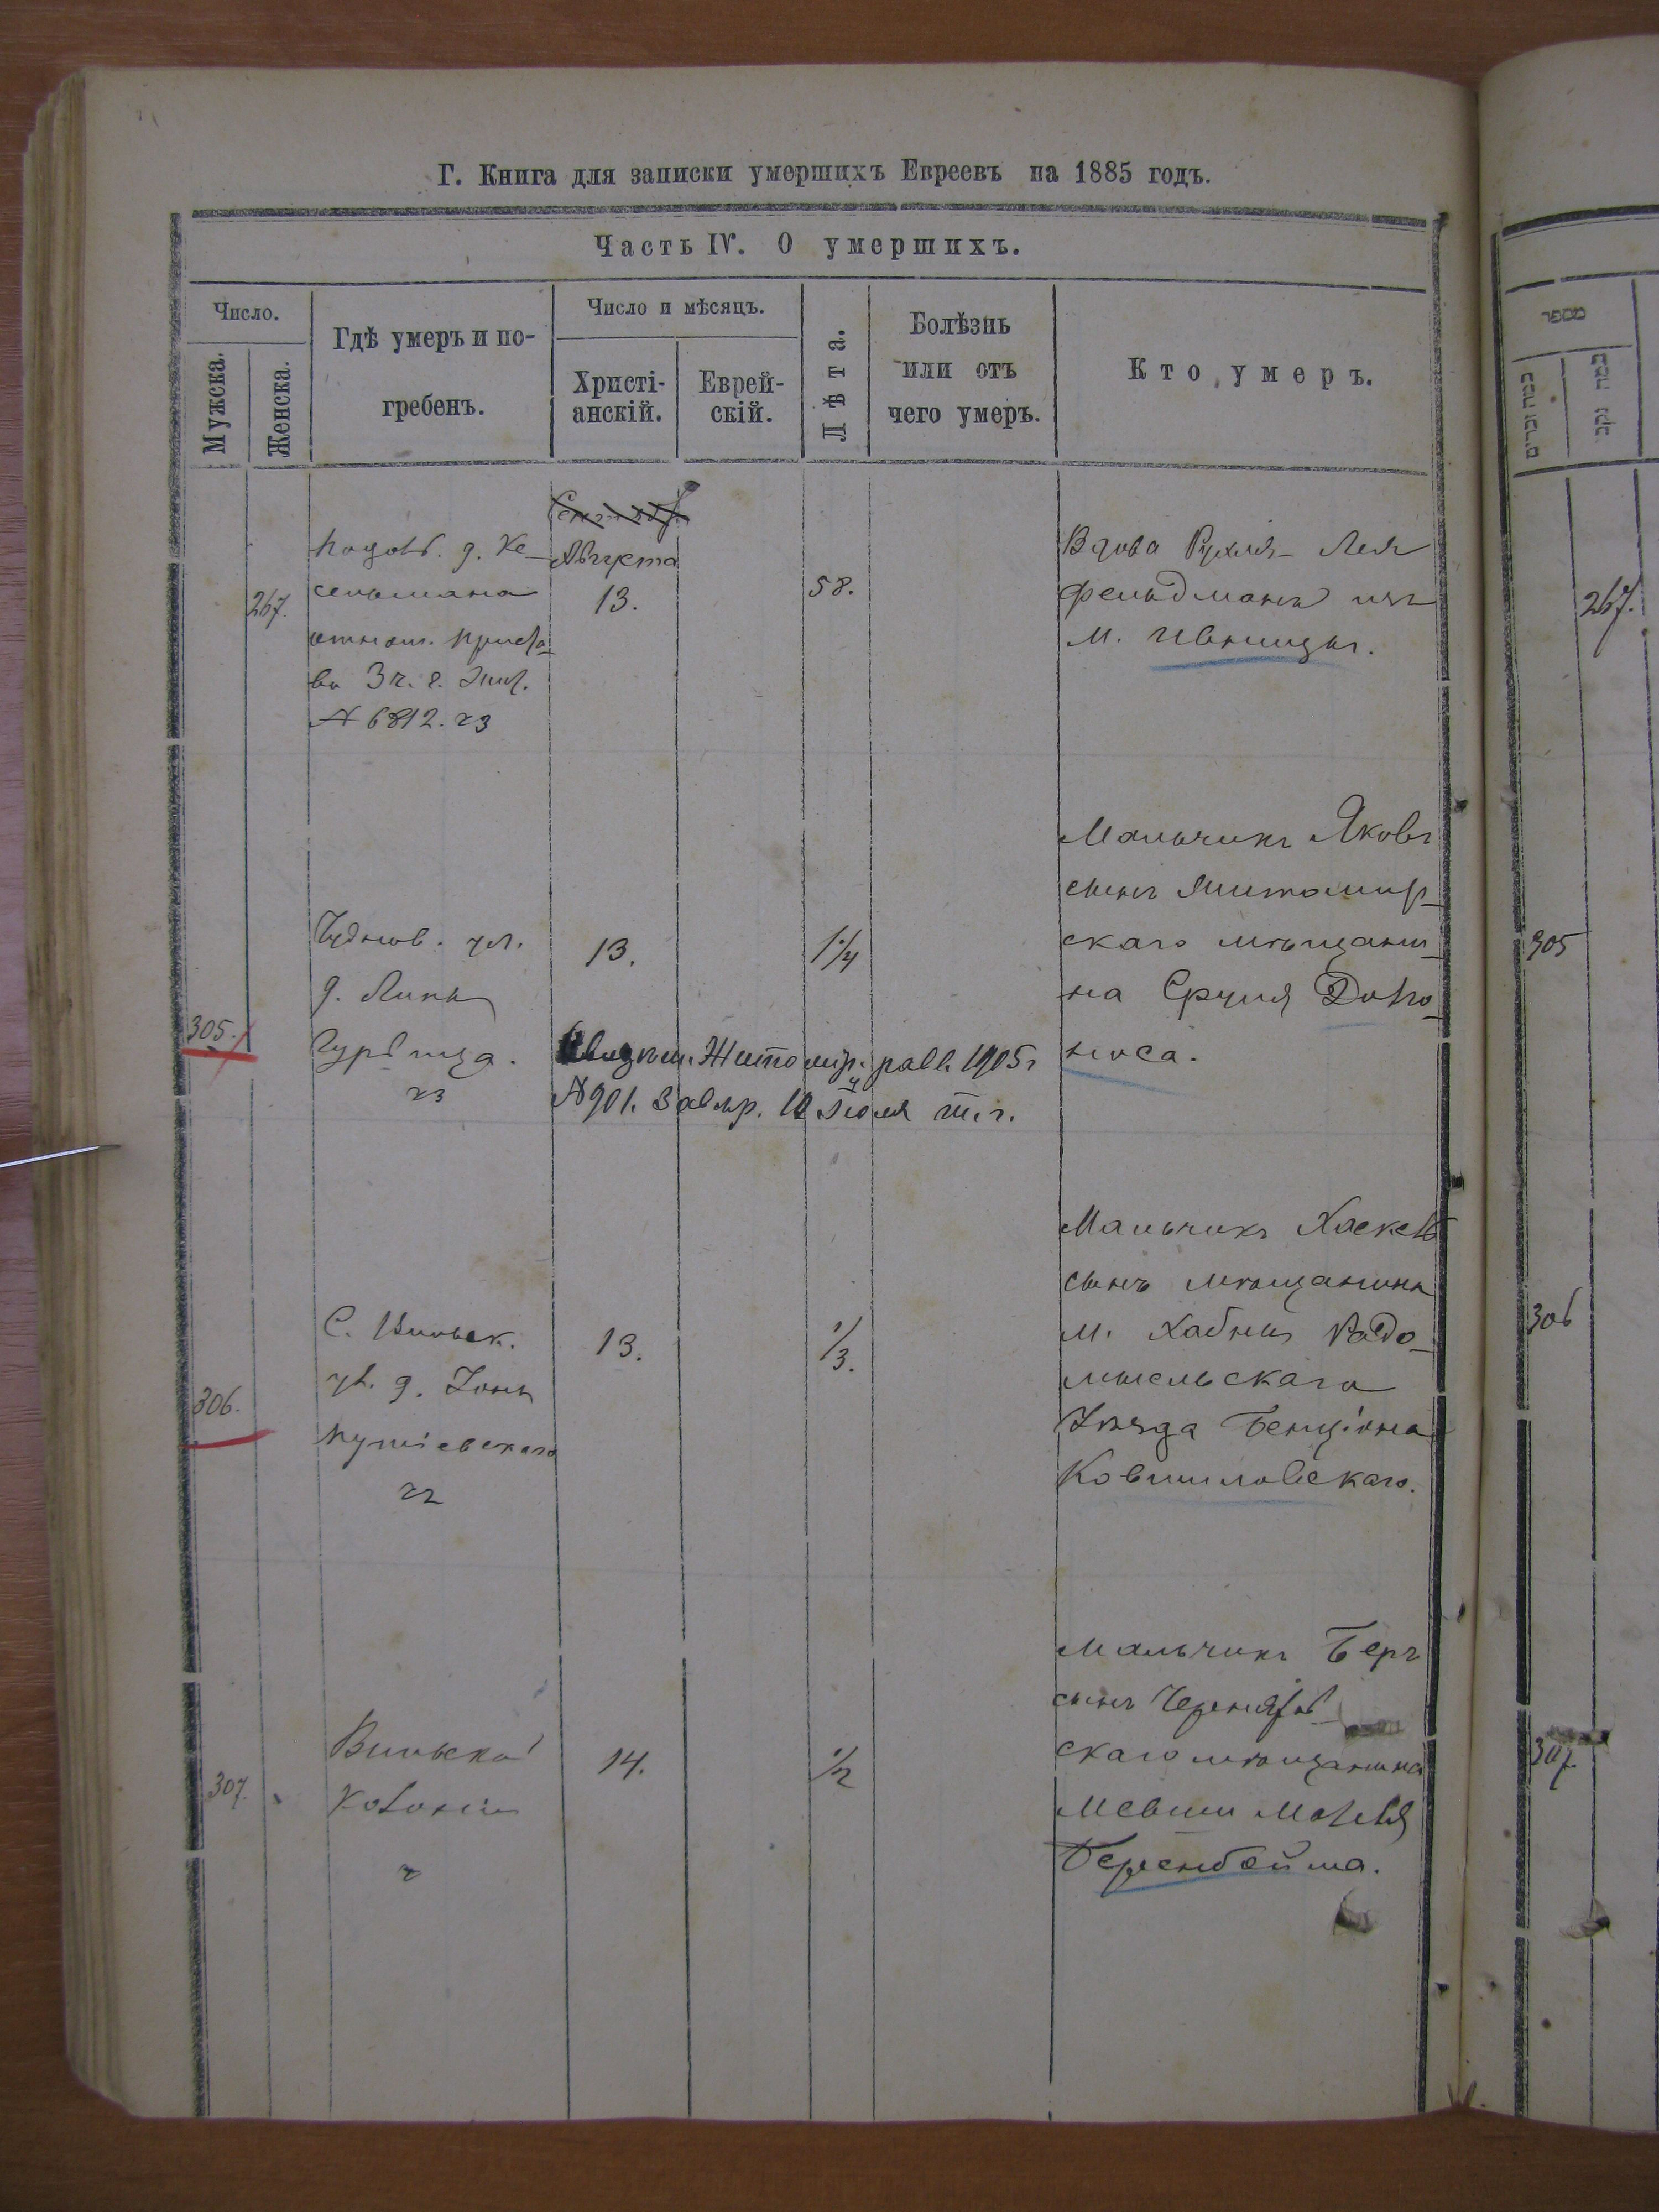 Г. Книга для записки умершихъ Евреевъ на 1885 годъ.
Часть IV. О умершихъ.
Число.
Мужска.
Женска.
Гдѣ умеръ и по-
гребенъ.
Число и мѣсяцъ.
Христі-
анскій.
Еврей-
скій.
Лѣта.
Болѣзнь
или отъ
чего умеръ.
Кто умеръ.
267.
д. Ке-
сельмана
отнош. приста-
ва 3 ч. г. Жит.
№ 6812.
Августа
13.
58.
Вдова Рухля-Лея
Фельдманъ изъ
м. Ивницы.
305.
Чуднов. ул.
д. Липы
Гурвица.
13.
1 1/4
Мальчикъ Яковъ
сынъ Житомир-
скаго мѣщани-
на Сруля Доло-
носа.
Житомір. равв. 1905 г
№ 901. 10 Іюля т. г.
306.
С. Вильск.
ул. д. Іоны
13.
1/3.
Мальчикъ Хаскель
сынъ мѣщанина
м. Хабны Радо-
мысльскаго
Уѣзда Бенціона
Ковшиловскаго.
307.
Вильска
Колонія
14.
1/2
Мальчикъ Беръ
сынъ
скаго мѣщанина
Беренбойма.
267.
305
306
307.